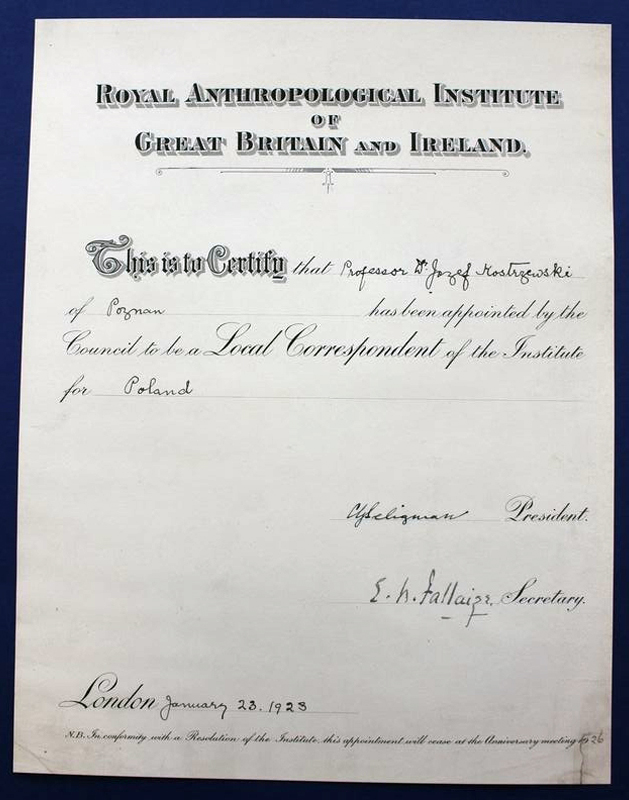 ROYAL ANTHROPOLOGICAL INSTITUTE
OF
GREAT BRITAIN AND IRELAND.
This is to Certify that Professor Dr. Jozef Kostrzewski
of Poznan has been appointed by the
Council to be a Local Correspondent of the Institute
for Poland
CGSeligman President.
E. N. Fallaize, Secretary.
London January 23. 1923
N.B. In conformity with a Resolution of the Institute, this appointment will cease at the Anniversary meeting 1926